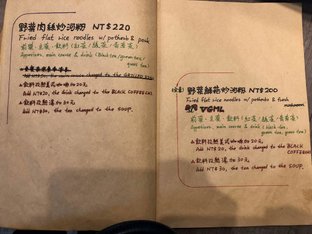 野葉肉絲炒河粉 NT$220
Fried flat rice noodles w/potherb & pork
前菜、主菜、飲料(紅茶/綠茶/青茶)
Appetizers, main course & drink (Black tea/green tea/
△飲料改熱美式咖啡加20元
Add NT$20, the drink changed to the BLACK COFFEE(HOT)
△飲料改熱湯加30元
Add NT$30, the tea changed to the SOUP.
野葉鮮菇炒河粉 NT$200
Fried flat rice noodles w/potherb &
mushroom
前菜、主菜、飲料(紅茶/綠茶/青茶)
Appetizers, main course & drink (black tea/
green tea)
△飲料改熱美式咖啡加20元
Add NT$20, the drink changed to the BLACK
△飲料改熱湯加30元
Add NT$30, the tea changed to the SOUP.